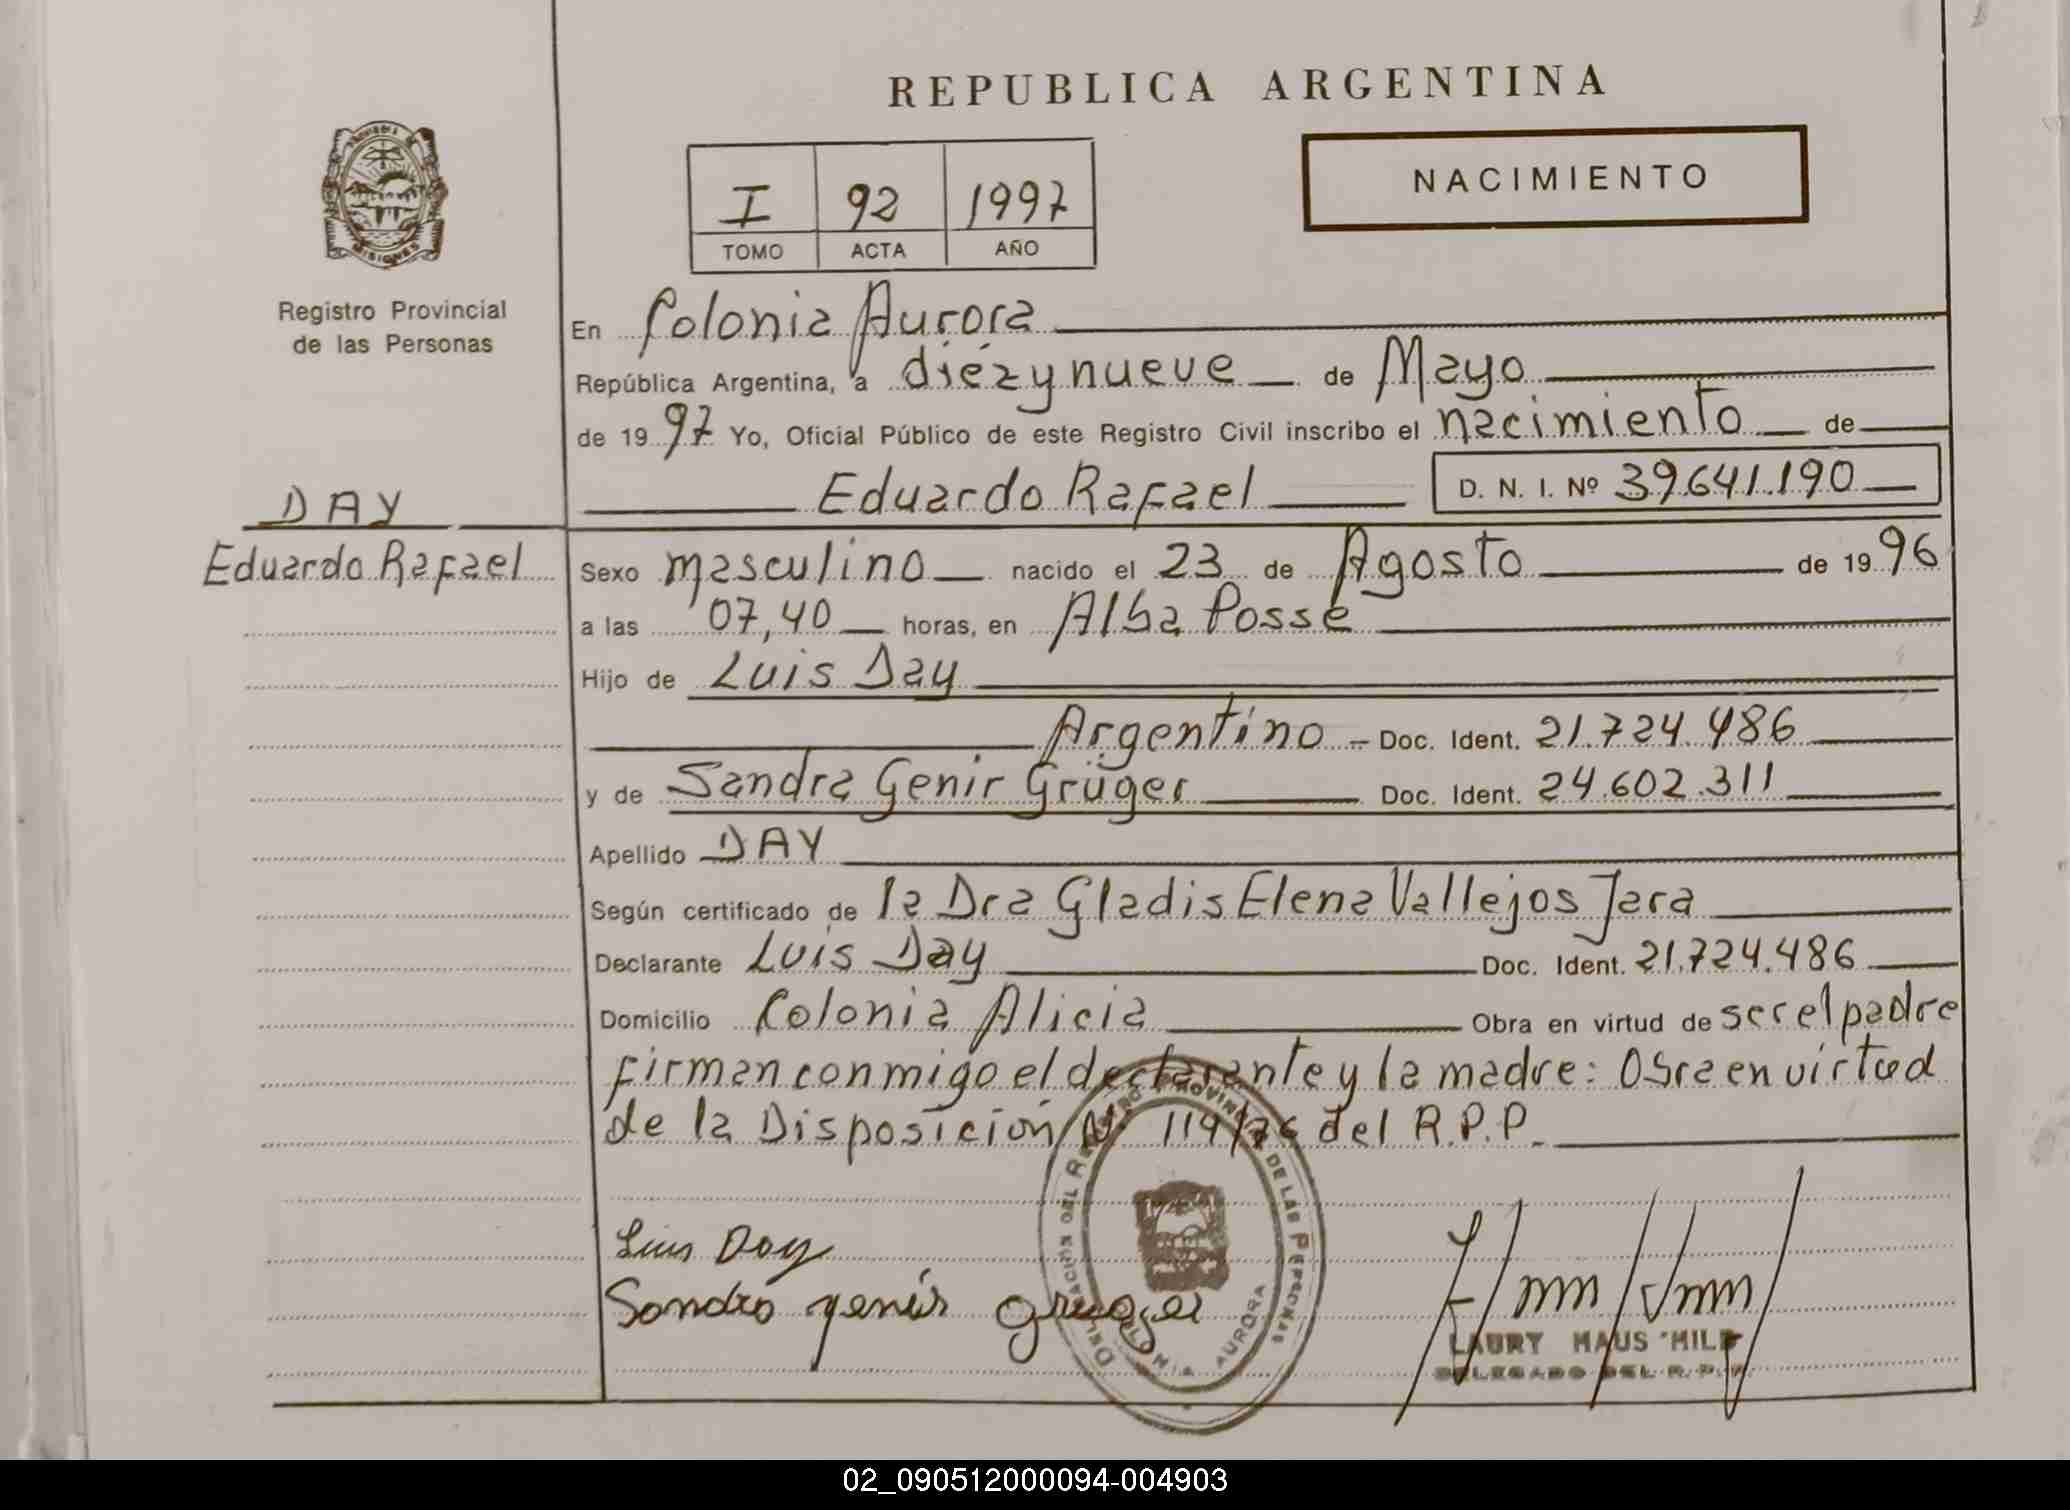 REPUBLICA ARGENTINA
NACIMIENTO
I 92 1997
TOMO ACTA AÑO
PROVINCIA DE MISIONES
Registro Provincial
de las Personas
DAY
Eduardo Rafael
En Colonia Aurora
República Argentina, a diezynueve de Mayo
de 1997 Yo, Oficial Público de este Registro Civil inscribo el nacimiento de
Eduardo Rafael D. N. I. Nº 39.641.190
Sexo masculino nacido el 23 de Agosto de 1996
a las 07,40 horas, en Alba Posse
Hijo de Luis Day
Argentino - Doc. Ident. 21.724.486
y de Sandra Genir Grüger Doc. Ident. 24.602.311
Apellido DAY
Según certificado de la Dra Gladis Elena Vallejos Jara
Declarante Luis Day Doc. Ident. 21.724.486
Domicilio Colonia Alicia Obra en virtud de ser el padre
firman conmigo el declarante y la madre: Obra en virtud
de la Disposición Nº 119/76 del R.P.P.
Luis Day
Sandra genir gruger
DELEGACIÓN DEL REGISTRO PROVINCIAL DE LAS PERSONAS
COLONIA AURORA
LAURY MAUS
DELEGADO DEL R.P.P.
02_090512000094-004903